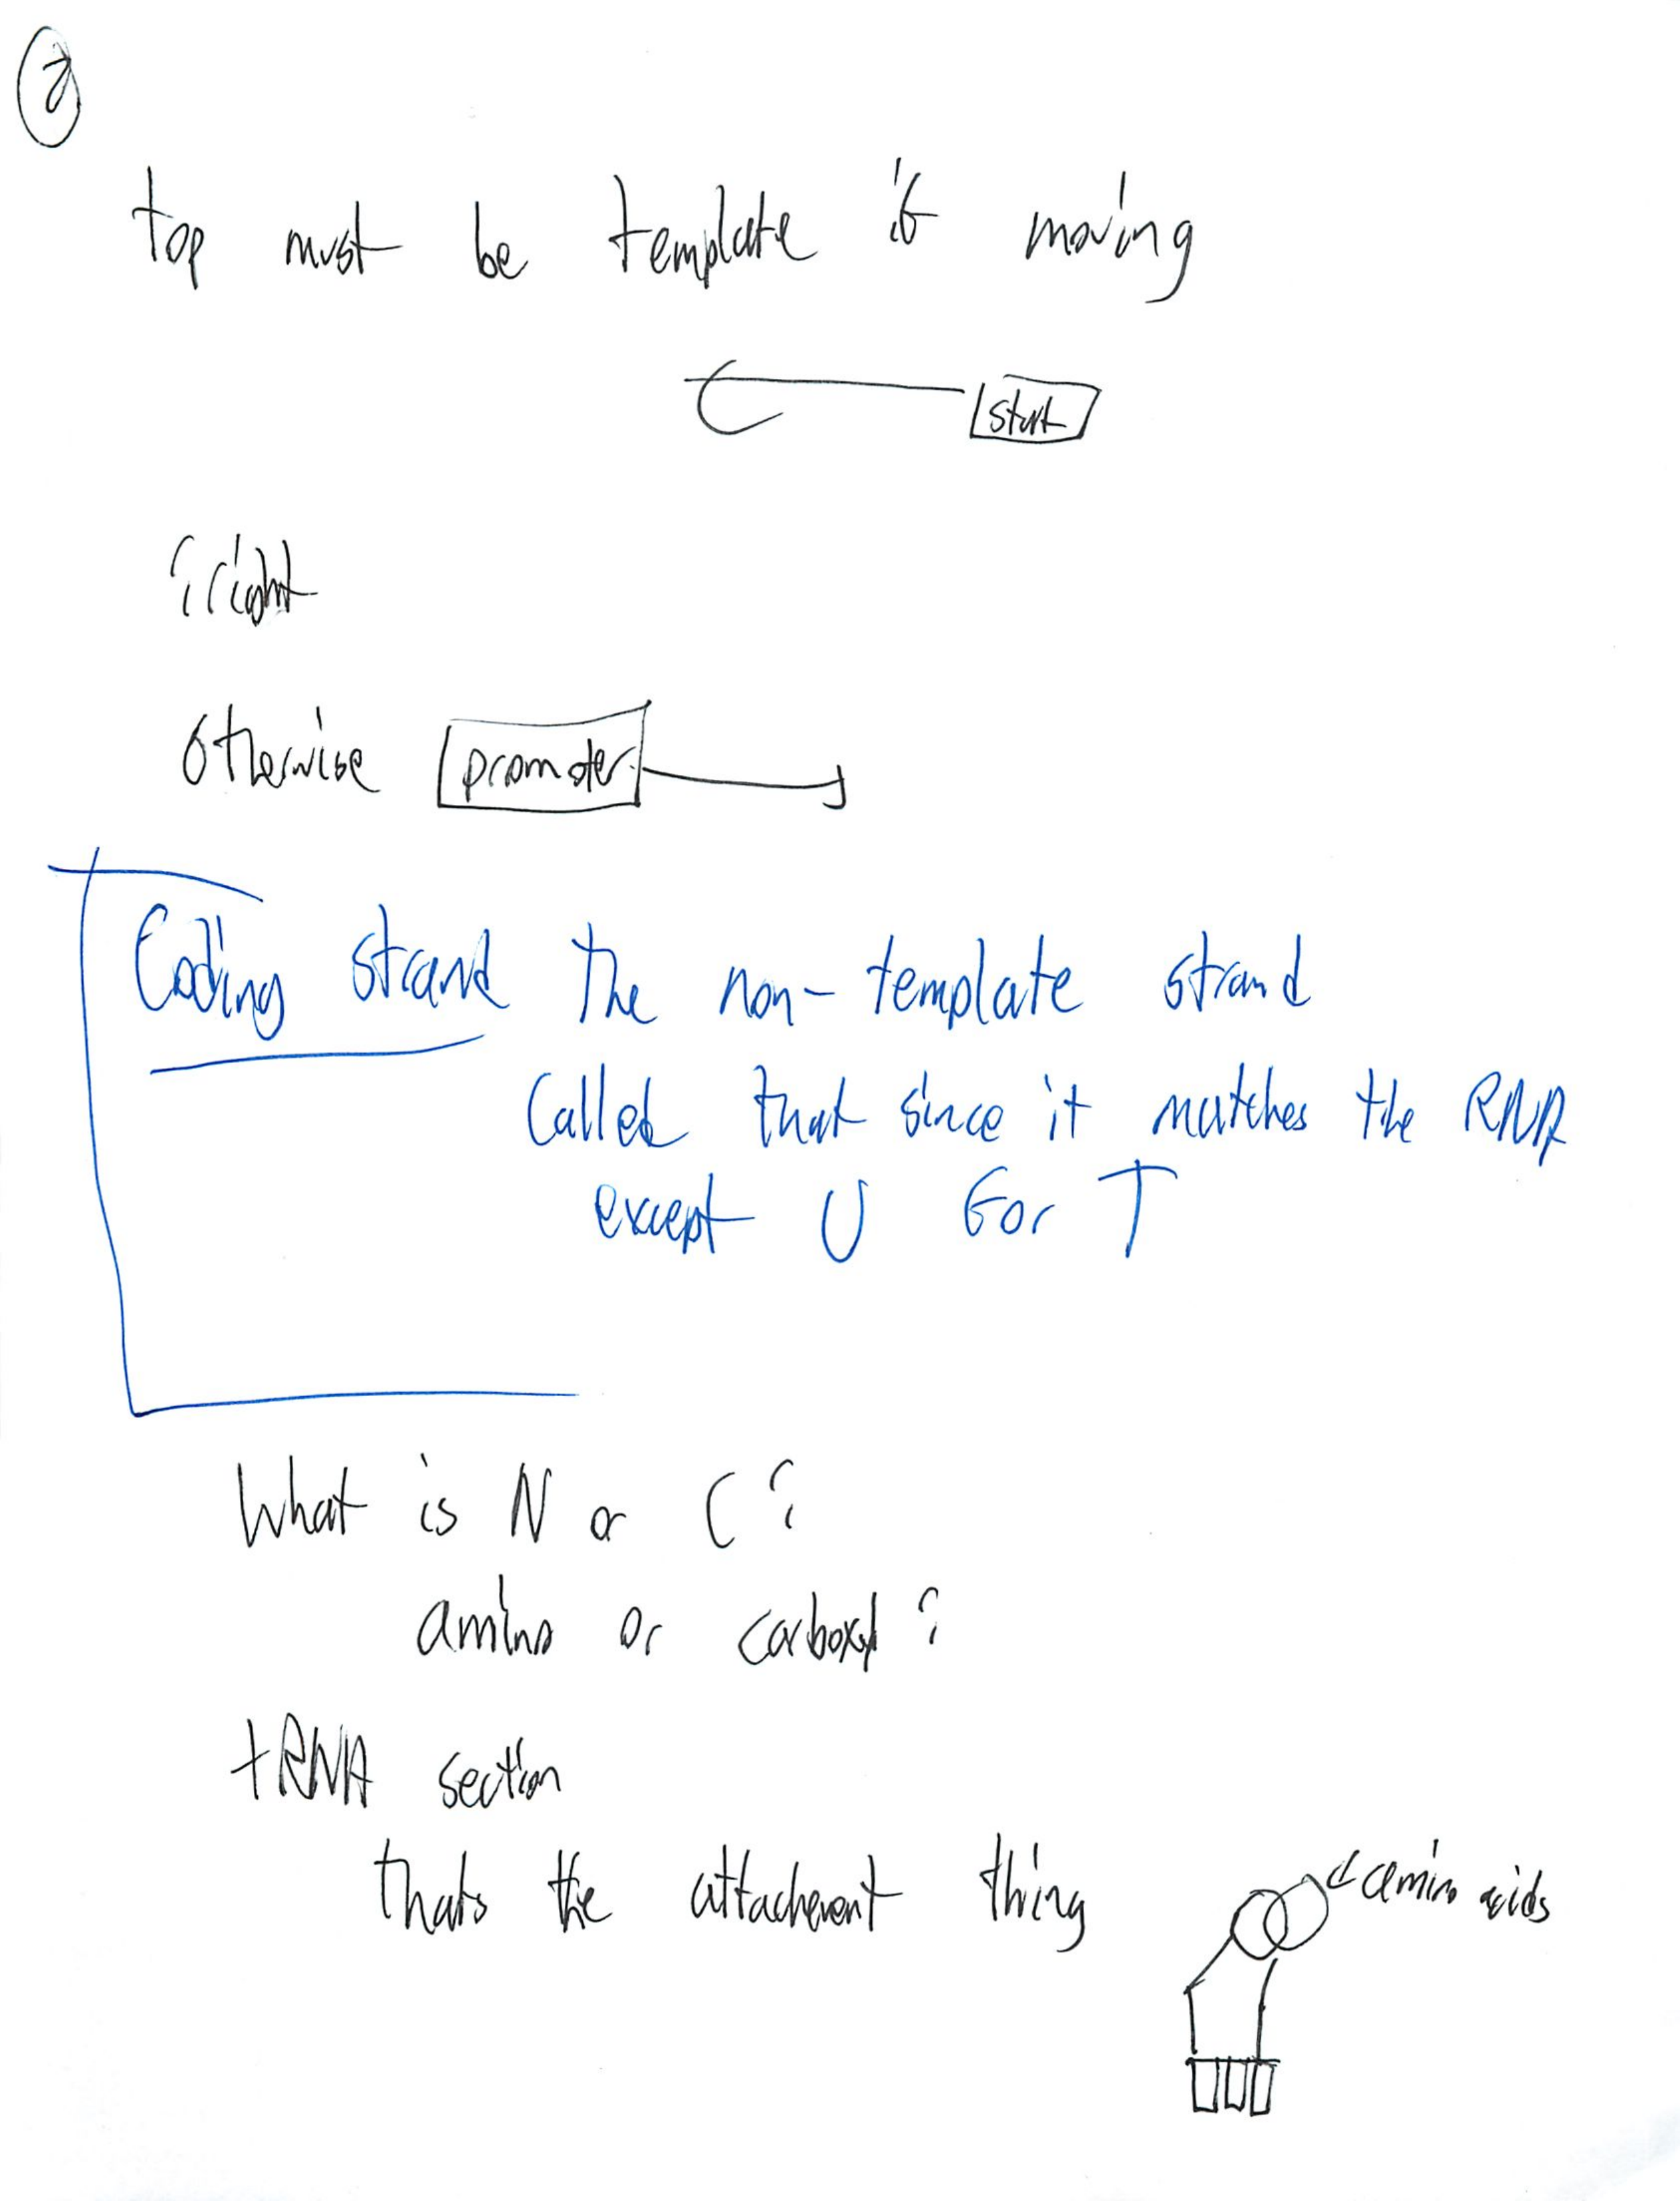 2
top must be template if moving
start
?right
otherwise promoter
Coding strand the non-template strand
Called that since it matches the RNA
except U for T
What is N or C?
amino or carboxyl?
tRNA section
thats the attachement thing
amino acids